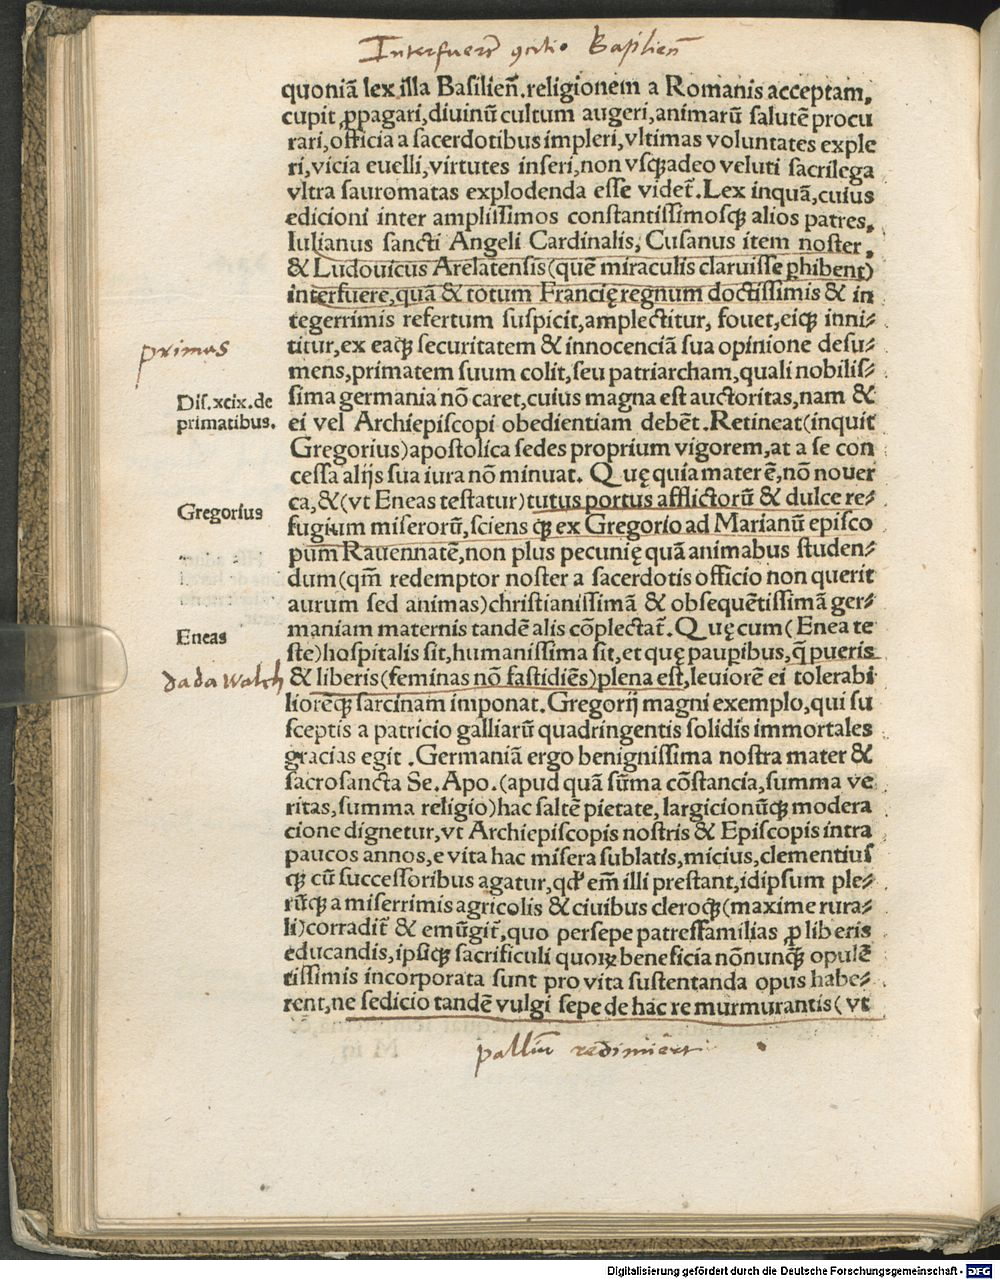 Interfuerūt ꝯcilio Basilien̄
quoniā lex illa Basilien̄.religionem a Romanis acceptam,
cupit ꝓpagari,diuinū cultum augeri,animarū salutē procu
rari,officia a sacerdotibus impleri,vltimas voluntates exple
ri,vicia euelli,virtutes inseri,non vsqꝫadeo veluti sacrilega
vltra sauromatas explodenda esse videt᷑.Lex inquā,cuius
edicioni inter amplissimos constantissimosqꝫ alios patres,
Iulianus sancti Angeli Cardinalis, Cusanus item noster,
& Ludouicus Arelatensis(quē miraculis claruisse ꝑhibent)
interfuere,quā & totum Francię regnum doctissimis & in
tegerrimis refertum suspicit,amplectitur, fouet,eiqꝫ inni⸗
titur,ex eaqꝫ securitatem & innocenciā sua opinione desu⸗
primas
mens,primatem suum colit,seu patriarcham,quali nobilis⸗
Dis.xcix.de
primatibus.
sima germania nō caret,cuius magna est auctoritas,nam &
ei vel Archiepiscopi obedientiam debēt.Retineat(inquit
Gregorius)apostolica sedes proprium vigorem,at a se con
cessa alijs sua iura nō minuat. Quę quia mater ē,nō nouer
ca,&(vt Eneas testatur)tutus portus afflictorū & dulce re⸗
Gregorius
fugium miserorū,sciens qꝫ ex Gregorio ad Marianū episco
pum Rauennatē,non plus pecunię quā animabus studen⸗
dum(qm̄ redemptor noster a sacerdotis officio non querit
aurum sed animas)christianissimā & obsequētissimā ger⸗
Eneas
maniam maternis tandē alis cōplectat᷑.Quę cum(Enea te
ste)hospitalis sit,humanissima sit,et quę pauꝑibus,q̄ pueris
dada walch
& liberis(feminas nō fastidiēs)plena est,leuiorē ei tolerabi
liorēqꝫ sarcinam imponat.Gregorij magni exemplo,qui su
sceptis a patricio galliarū quadringentis solidis immortales
gracias egit .Germaniā ergo benignissima nostra mater &
sacrosancta Se.Apo.(apud quā sūma cōstancia,summa ve
ritas,summa religio)hac saltē pietate, largicionūqꝫ modera
cione dignetur,vt Archiepiscopis nostris & Episcopis intra
paucos annos,e vita hac misera sublatis,micius,clementius
qꝫ cū successoribus agatur,qđ em̄ illi prestant,idipsum ple⸗
rūqꝫ a miserrimis agricolis & ciuibus cleroqꝫ(maxime rura⸗
li)corradit᷑ & emūgit᷑,quo persepe patresfamilias ꝓ liberis
educandis,ipsiqꝫ sacrificuli quoꝝ beneficia nōnunqꝫ opulē
tissimis incorporata sunt pro vita sustentanda opus habe⸗
rent,ne sedicio tandē vulgi sepe de hac re murmurantis(vt
palliū redimēt
Digitalisierung gefördert durch die Deutsche Forschungsgemeinschaft - DFG